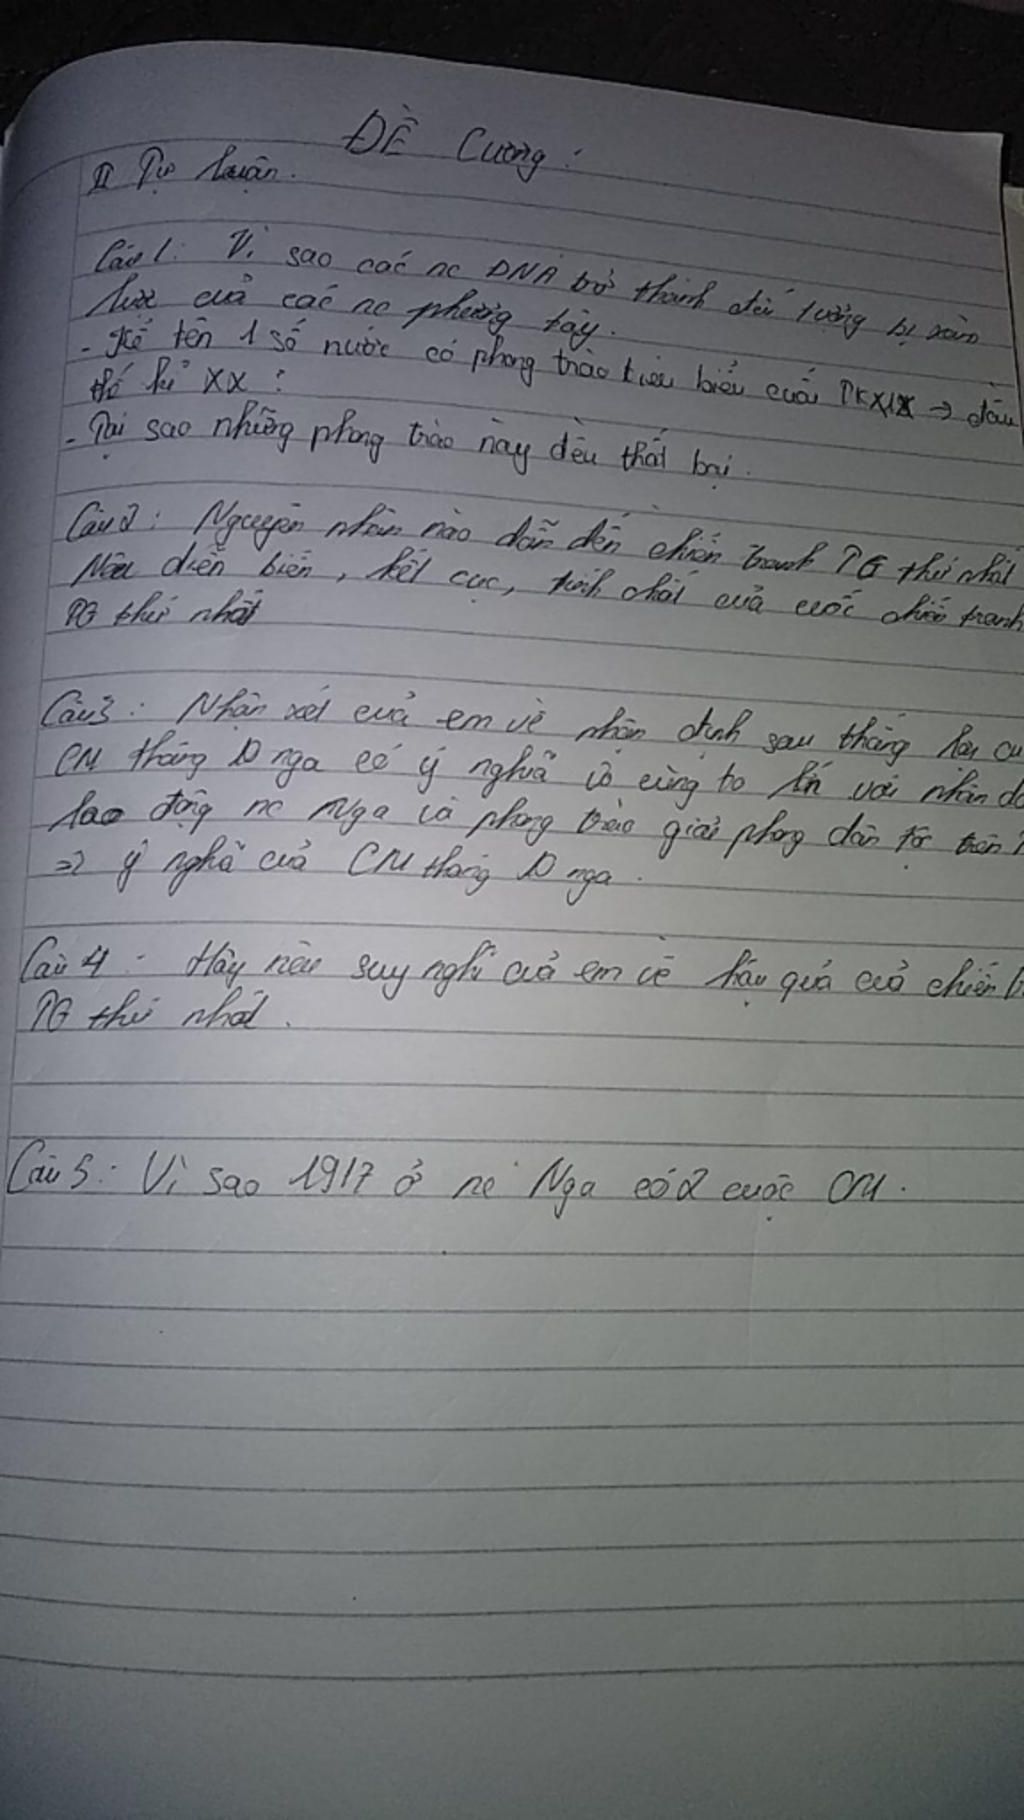 ĐỀ Cương:
II Tự luận.
Câu 1: Vì sao các nc ĐNA trở thành đối tượng bị xâm
lược của các nc phương tây.
- Kể tên 1 số nước có phong trào tiêu biểu cuối TK XIX → đầu
thế kỉ XX?
- Tại sao những phong trào này đều thất bại.
Câu 2: Nguyên nhân nào dẫn đến chiến tranh TG thứ nhất
Nêu diễn biến, kết cục, tính chất của cuộc chiến tranh
TG thứ nhất
Câu 3: Nhận xét của em về nhận định sau thắng lợi
CM tháng 10 nga có ý nghĩa vô cùng to lớn với nhân
lao động nc Nga và phong trào giải phóng dân tộc trên
=> ý nghĩa của CM tháng 10 nga.
Câu 4: Hãy nêu suy nghĩ của em về hậu quả của chiến
TG thứ nhất.
Câu 5: Vì sao 1917 ở nc Nga có 2 cuộc CM.